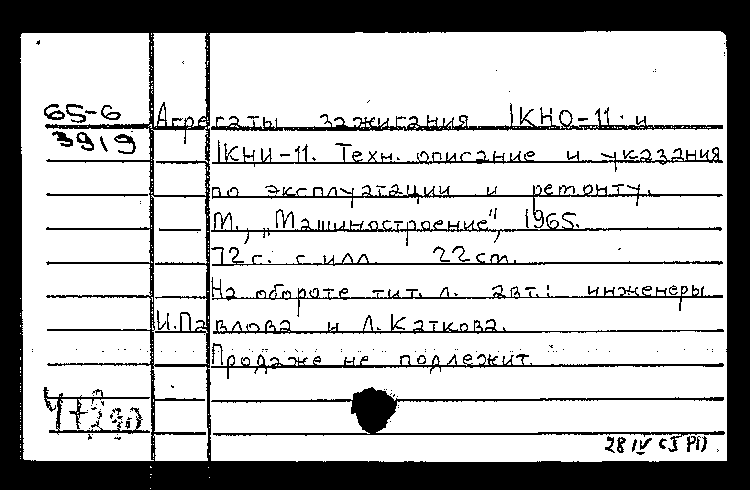 65-6
3919
Агрегаты зажигания 1КНО-11 и
1КНИ-11. Техн. описание и указания
по эксплуатации и ремонту.
М., „Машиностроение", 1965.
72 с. с илл. 22 cm.
На обороте тит. л. авт.: инженеры
И.Павлова и Л.Каткова.
Продаже не подлежит.
28 IV